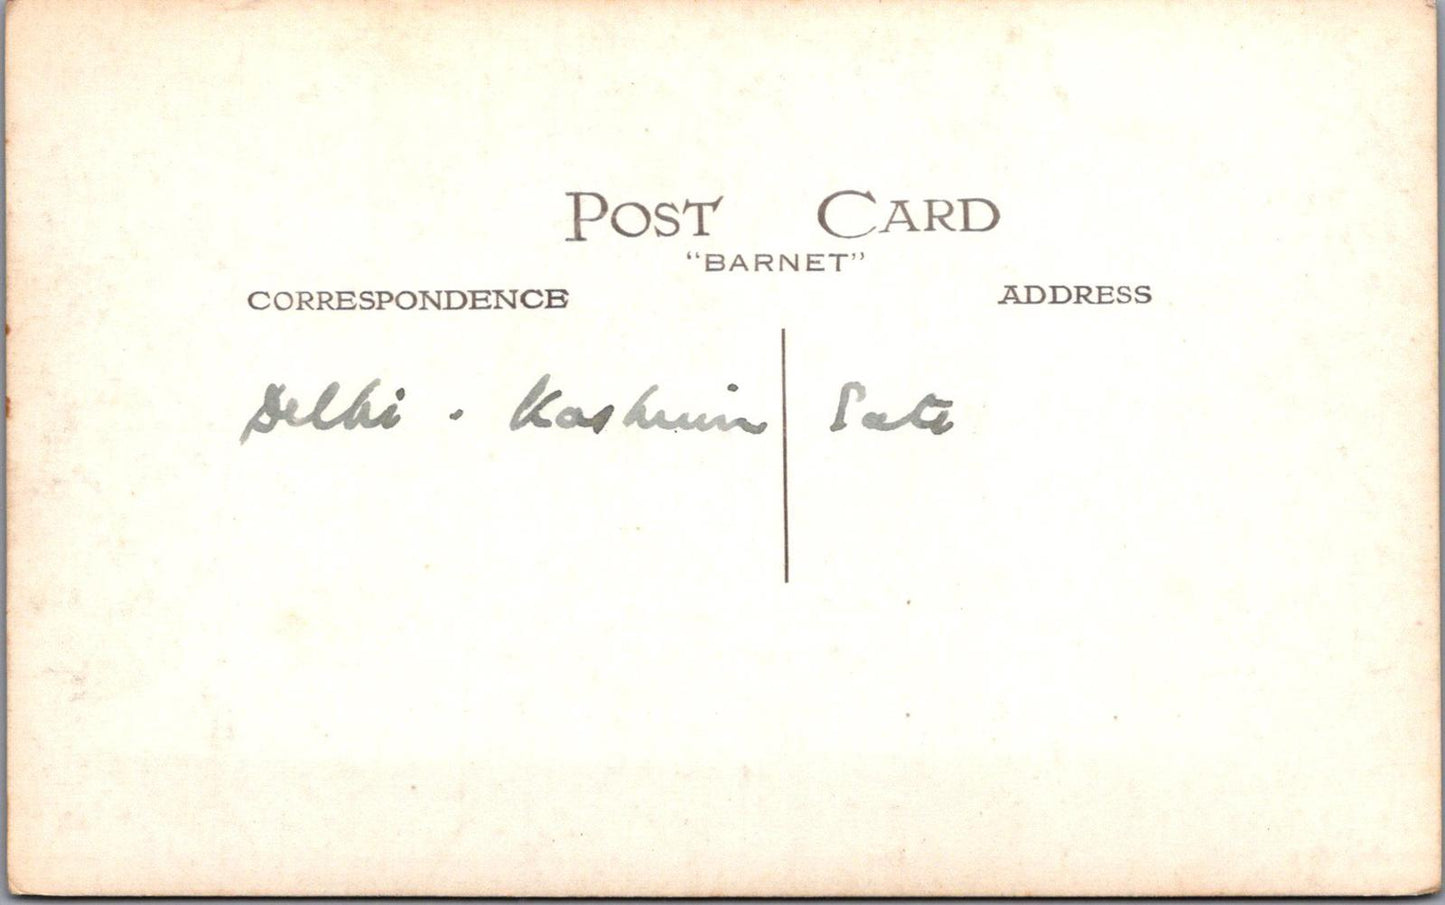 POST CARD
"BARNET"
CORRESPONDENCE ADDRESS
Delhi . Kashmir Gate